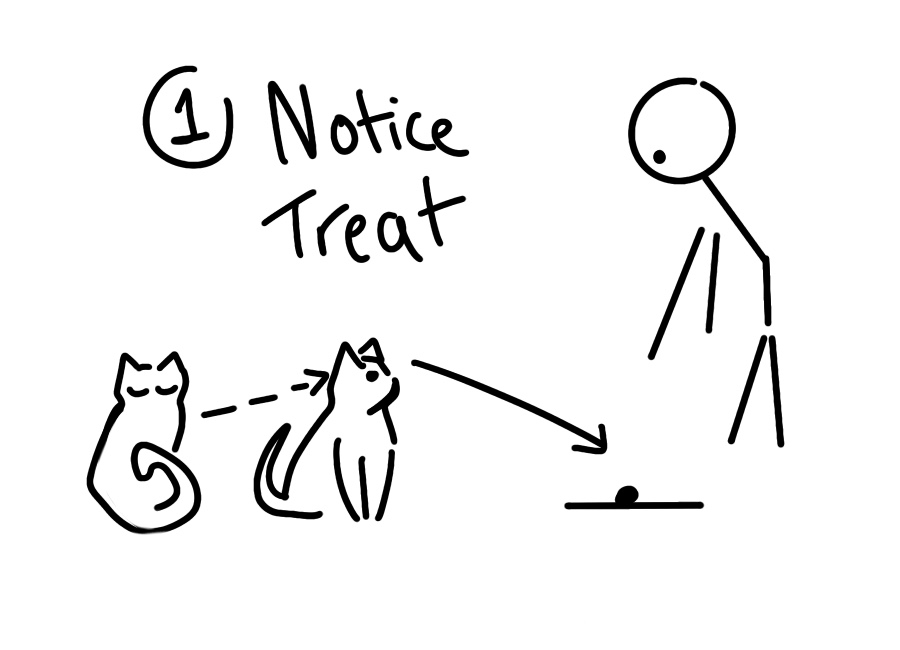 ① Notice
Treat